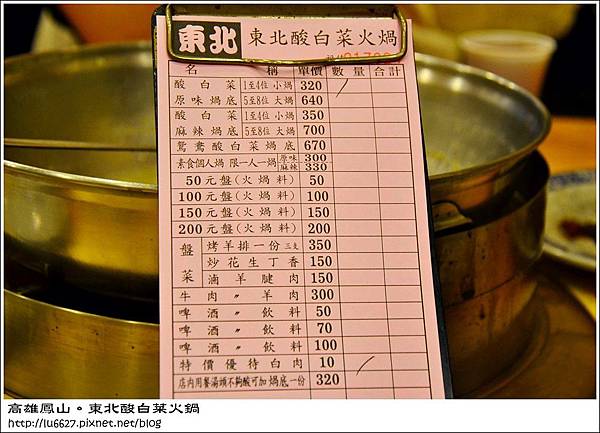 東北 東北酸白菜火鍋
名 稱 單價 數量 合計
酸白菜 1至4位 小鍋 320
原味鍋底 5至8位 大鍋 640
酸白菜 1至4位 小鍋 350
麻辣鍋底 5至8位 大鍋 700
鴛鴦酸白菜鍋底 670
素食個人鍋 限一人一鍋 原味 300
麻辣 330
50元盤(火鍋料) 50
100元盤(火鍋料) 100
150元盤(火鍋料) 150
200元盤(火鍋料) 200
盤菜 烤羊排一份 三支 350
炒花生丁香 150
滷羊腱肉 150
牛肉 〃 羊肉 300
啤酒 〃 飲料 50
啤酒 〃 飲料 70
啤酒 〃 飲料 100
特價優待白肉 10
店內用餐湯頭不夠酸可加鍋底一份 320
高雄鳳山。東北酸白菜火鍋
http://lu6627.pixnet.net/blog